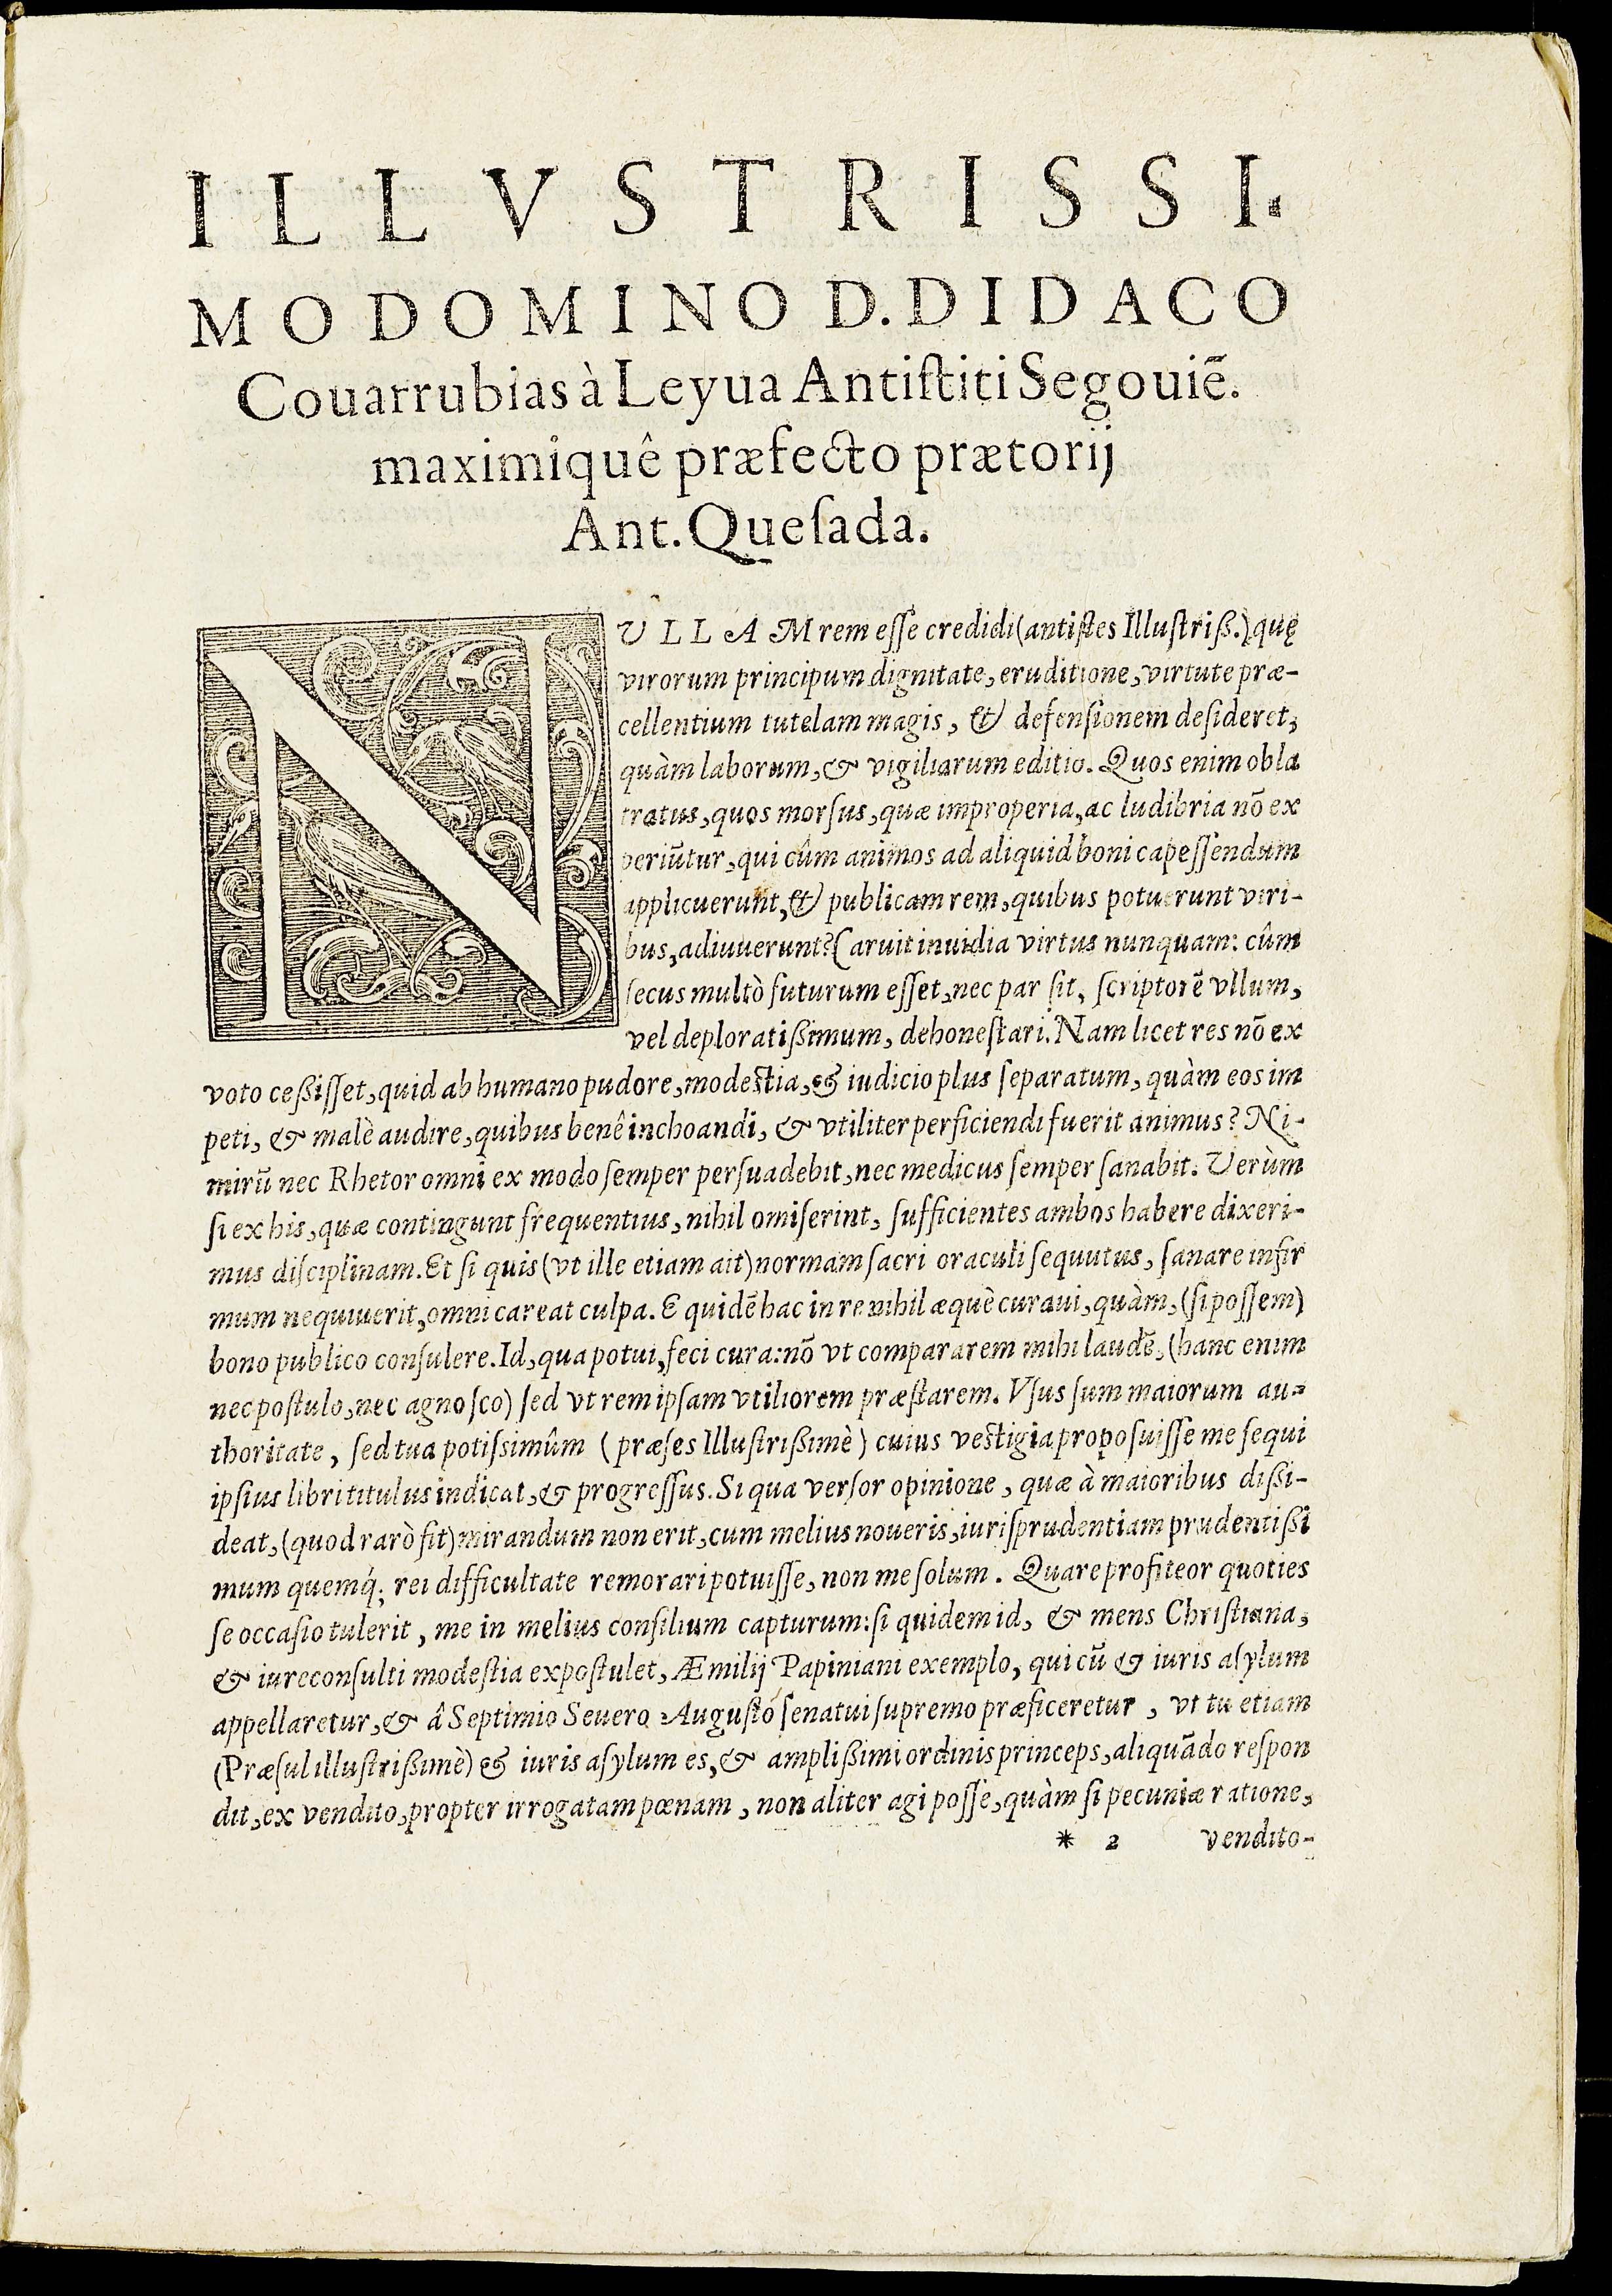 ILLVSTRISSI-
MO DOMINO D. DIDACO
Couarrubias à Leyua Antiſtiti Segouiē.
maximiquê præfecto prætorij
Ant. Queſada.
NVLLAM rem eſſe credidi (antiſtes Illuſtriß.) quę
virorum principum dignitate, eruditione, virtute præ-
cellentium tutelam magis, & defenſionem deſideret,
quàm laborum, & vigiliarum editio. Quos enim obla
tratus, quos morſus, quæ improperia, ac ludibria nō ex
periūtur, qui cûm animos ad aliquid boni capeſſendum
applicuerunt, & publicam rem, quibus potuerunt viri-
bus, adiuuerunt? Caruit inuidia virtus nunquam: cûm
ſecus multò futurum eſſet, nec par ſit, ſcriptorē vllum,
vel deploratißimum, dehoneſtari. Nam licet res nō ex
voto ceßiſſet, quid ab humano pudore, modeſtia, & iudicio plus ſeparatum, quàm eos im
peti, & malè audire, quibus benê inchoandi, & vtiliter perficiendi fuerit animus? Ni-
mirū nec Rhetor omni ex modo ſemper perſuadebit, nec medicus ſemper ſanabit. Verùm
ſi ex his, quæ contingunt frequentius, nihil omiſerint, ſufficientes ambos habere dixeri-
mus diſciplinam. Et ſi quis (vt ille etiam ait) normam ſacri oraculi ſequutus, ſanare infir
mum nequiuerit, omni careat culpa. E quidē hac in re nihil æquè curaui, quàm, (ſi poſſem)
bono publico conſulere. Id, qua potui, feci cura: nō vt compararem mihi laudē, (hanc enim
nec poſtulo, nec agnoſco) ſed vt rem ipſam vtiliorem præſtarem. Vſus ſum maiorum au-
thoritate, ſed tua potiſsimûm (præſes Illuſtrißimè) cuius veſtigia propoſuiſſe me ſequi
ipſius libri titulus indicat, & progreſſus. Si qua verſor opinione, quæ à maioribus dißi-
deat, (quod rarò fit) mirandum non erit, cum melius noueris, iuriſprudentiam prudentißi
mum quemq́; rei difficultate remorari potuiſſe, non me ſolum. Quare profiteor quoties
ſe occaſio tulerit, me in melius conſilium capturum: ſi quidem id, & mens Chriſtiana,
& iureconſulti modeſtia expoſtulet, Æmilij Papiniani exemplo, qui cū & iuris aſylum
appellaretur, & â Septimio Seuero Auguſto ſenatui ſupremo præficeretur, vt tu etiam
(Præſul illuſtrißimè) & iuris aſylum es, & amplißimi ordinis princeps, aliquādo reſpon
dit, ex vendito, propter irrogatam pœnam, non aliter agi poſſe, quàm ſi pecuniæ ratione,
* 2 vendito-